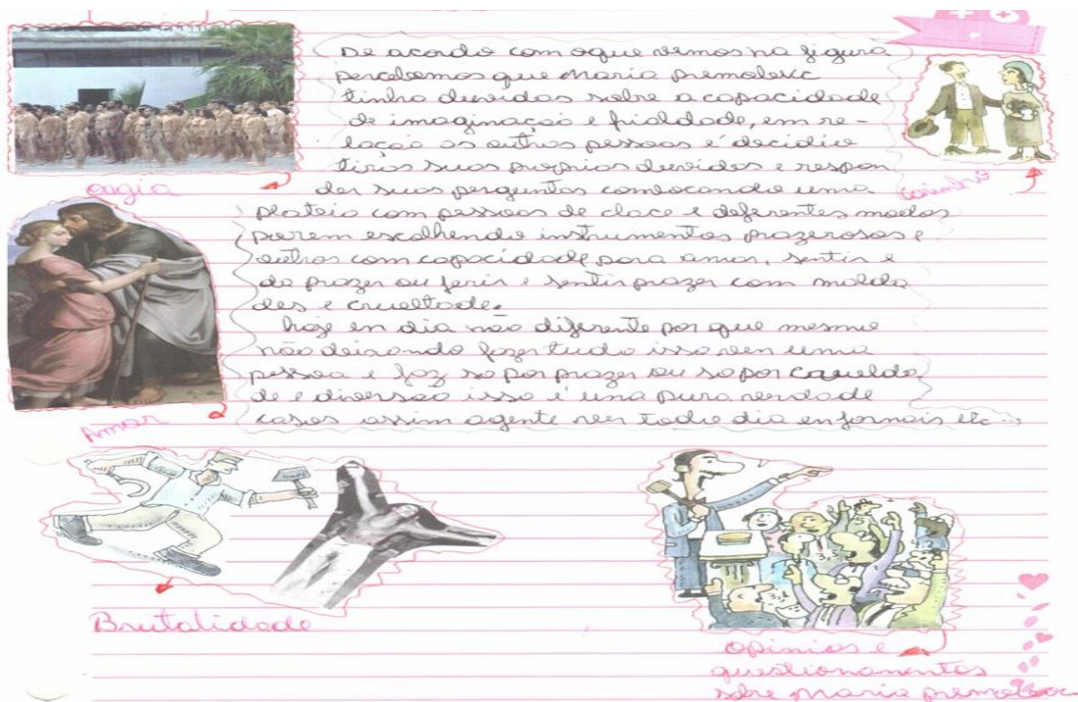 De acordo com oque vemos na figura
percebemos que Maria premolevic
tinha duvidas sobre a capacidade
de imaginação e frialdade, em re-
lação as outras pessoas é decidiu
tirar suas proprias duvidas e respon
der suas perguntas combocando uma
plateia com pessoas de clace e deferentes modos
porem escolhendo instrumentos prazerosos e
outros com capacidade para amar, sentir e
da prazer ou ferir e sentir prazer com malda
des e crueltade.
hoje en dia não diferente por que mesmo
não deixando fazer tudo isso ven uma
pessoa e faz so por prazer ou so por cruelda
de e diversao isso é uma pura verdade
casos assim agente ver todo dia en jornais etc...
orgia
Carinho
Amar
Brutalidade
opinios e
questionamentos
sobre Maria premolevic